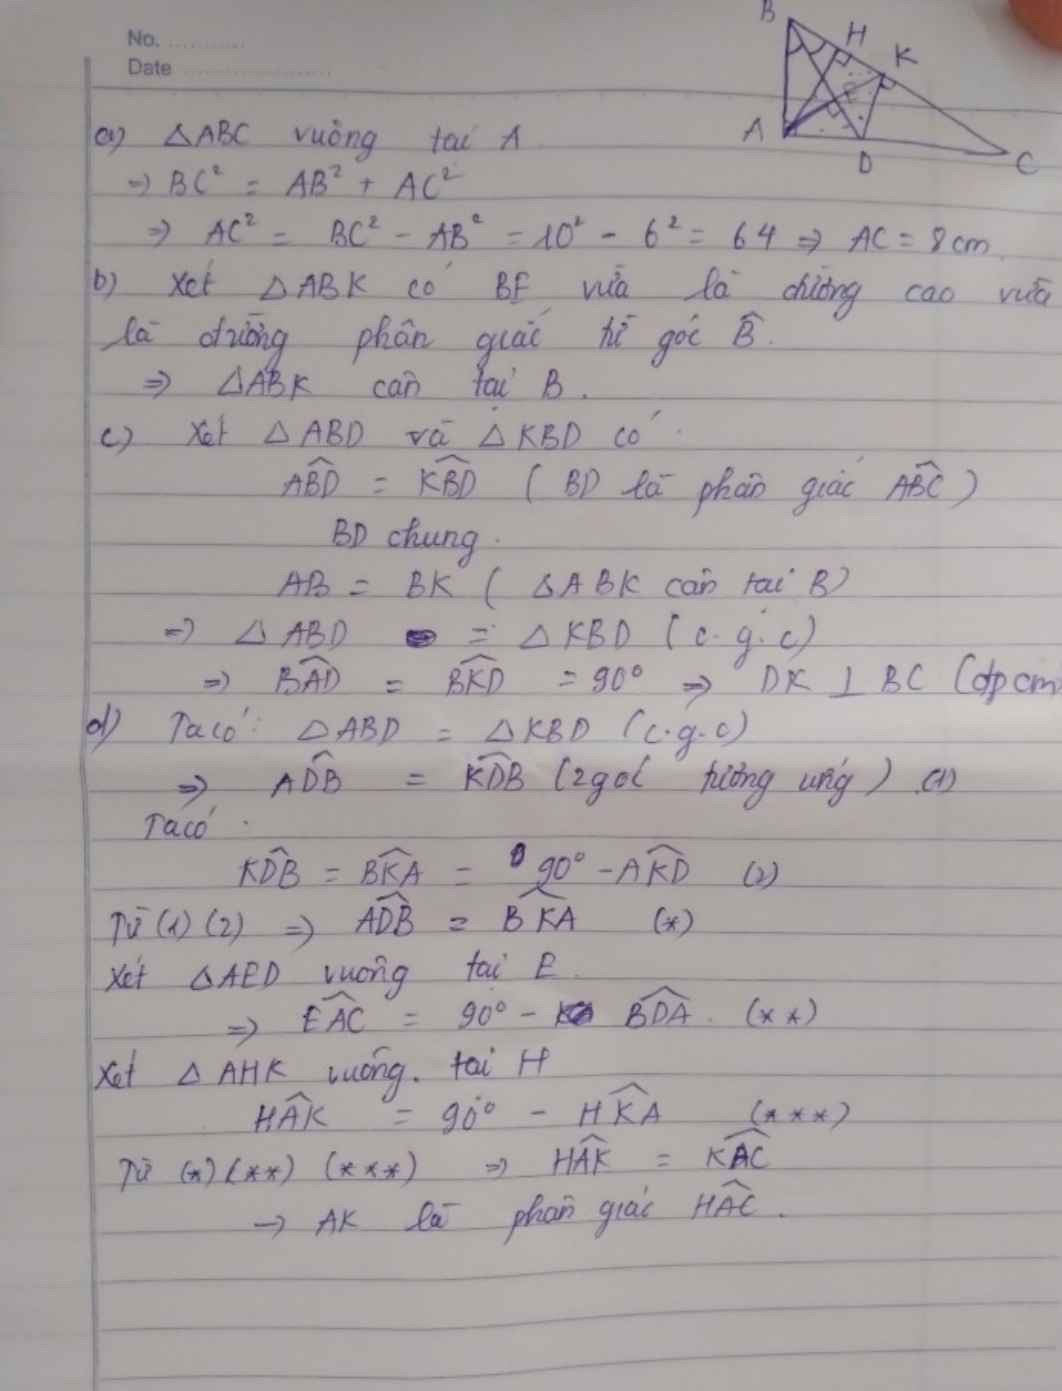 No. ............
Date ........................
B
H
K
E
A
D
C
a) △ABC vuông tại A
⇒ BC² = AB² + AC²
⇒ AC² = BC² - AB² = 10² - 6² = 64 ⇒ AC = 8cm.
b) Xét △ABK có BE vừa là đường cao vừa
là đường phân giác từ góc B̂.
⇒ △ABK cân tại B.
c) Xét △ABD và △KBD có
AB̂D = KB̂D ( BD là phân giác AB̂C )
BD chung.
AB = BK ( △ABK cân tại B)
⇒ △ABD = △KBD ( c.g.c)
⇒ BÂD = BK̂D = 90° ⇒ DK ⊥ BC (đpcm
d) Ta có: △ABD = △KBD (c.g.c)
⇒ AD̂B = KD̂B (2 góc tương ứng) (1)
Ta có
KD̂B = BK̂A = 90° - AK̂D (2)
Từ (1) (2) ⇒ AD̂B = BK̂A (*)
Xét △AED vuông tại E.
⇒ EÂC = 90° - BD̂A. (**)
Xét △AHK vuông. tại H
HÂK = 90° - HK̂A (***)
Từ (*) (**) (***) ⇒ HÂK = KÂC
→ AK là phân giác HÂC.